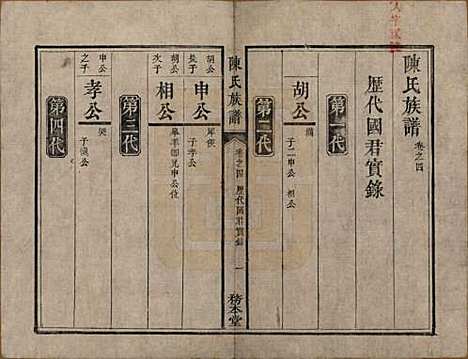 陳氏族譜 卷之四
歷代國君實錄
第一代
胡公 滿
子二申公 相公
第二代
陳氏族譜
卷之四 歷代國君實錄 一
務本堂
胡公長子
申公 犀侯
子孝公
胡公次子
相公 皋羊
即兄申公位
第三代
申公之子
孝公 突
子慎公
第四代